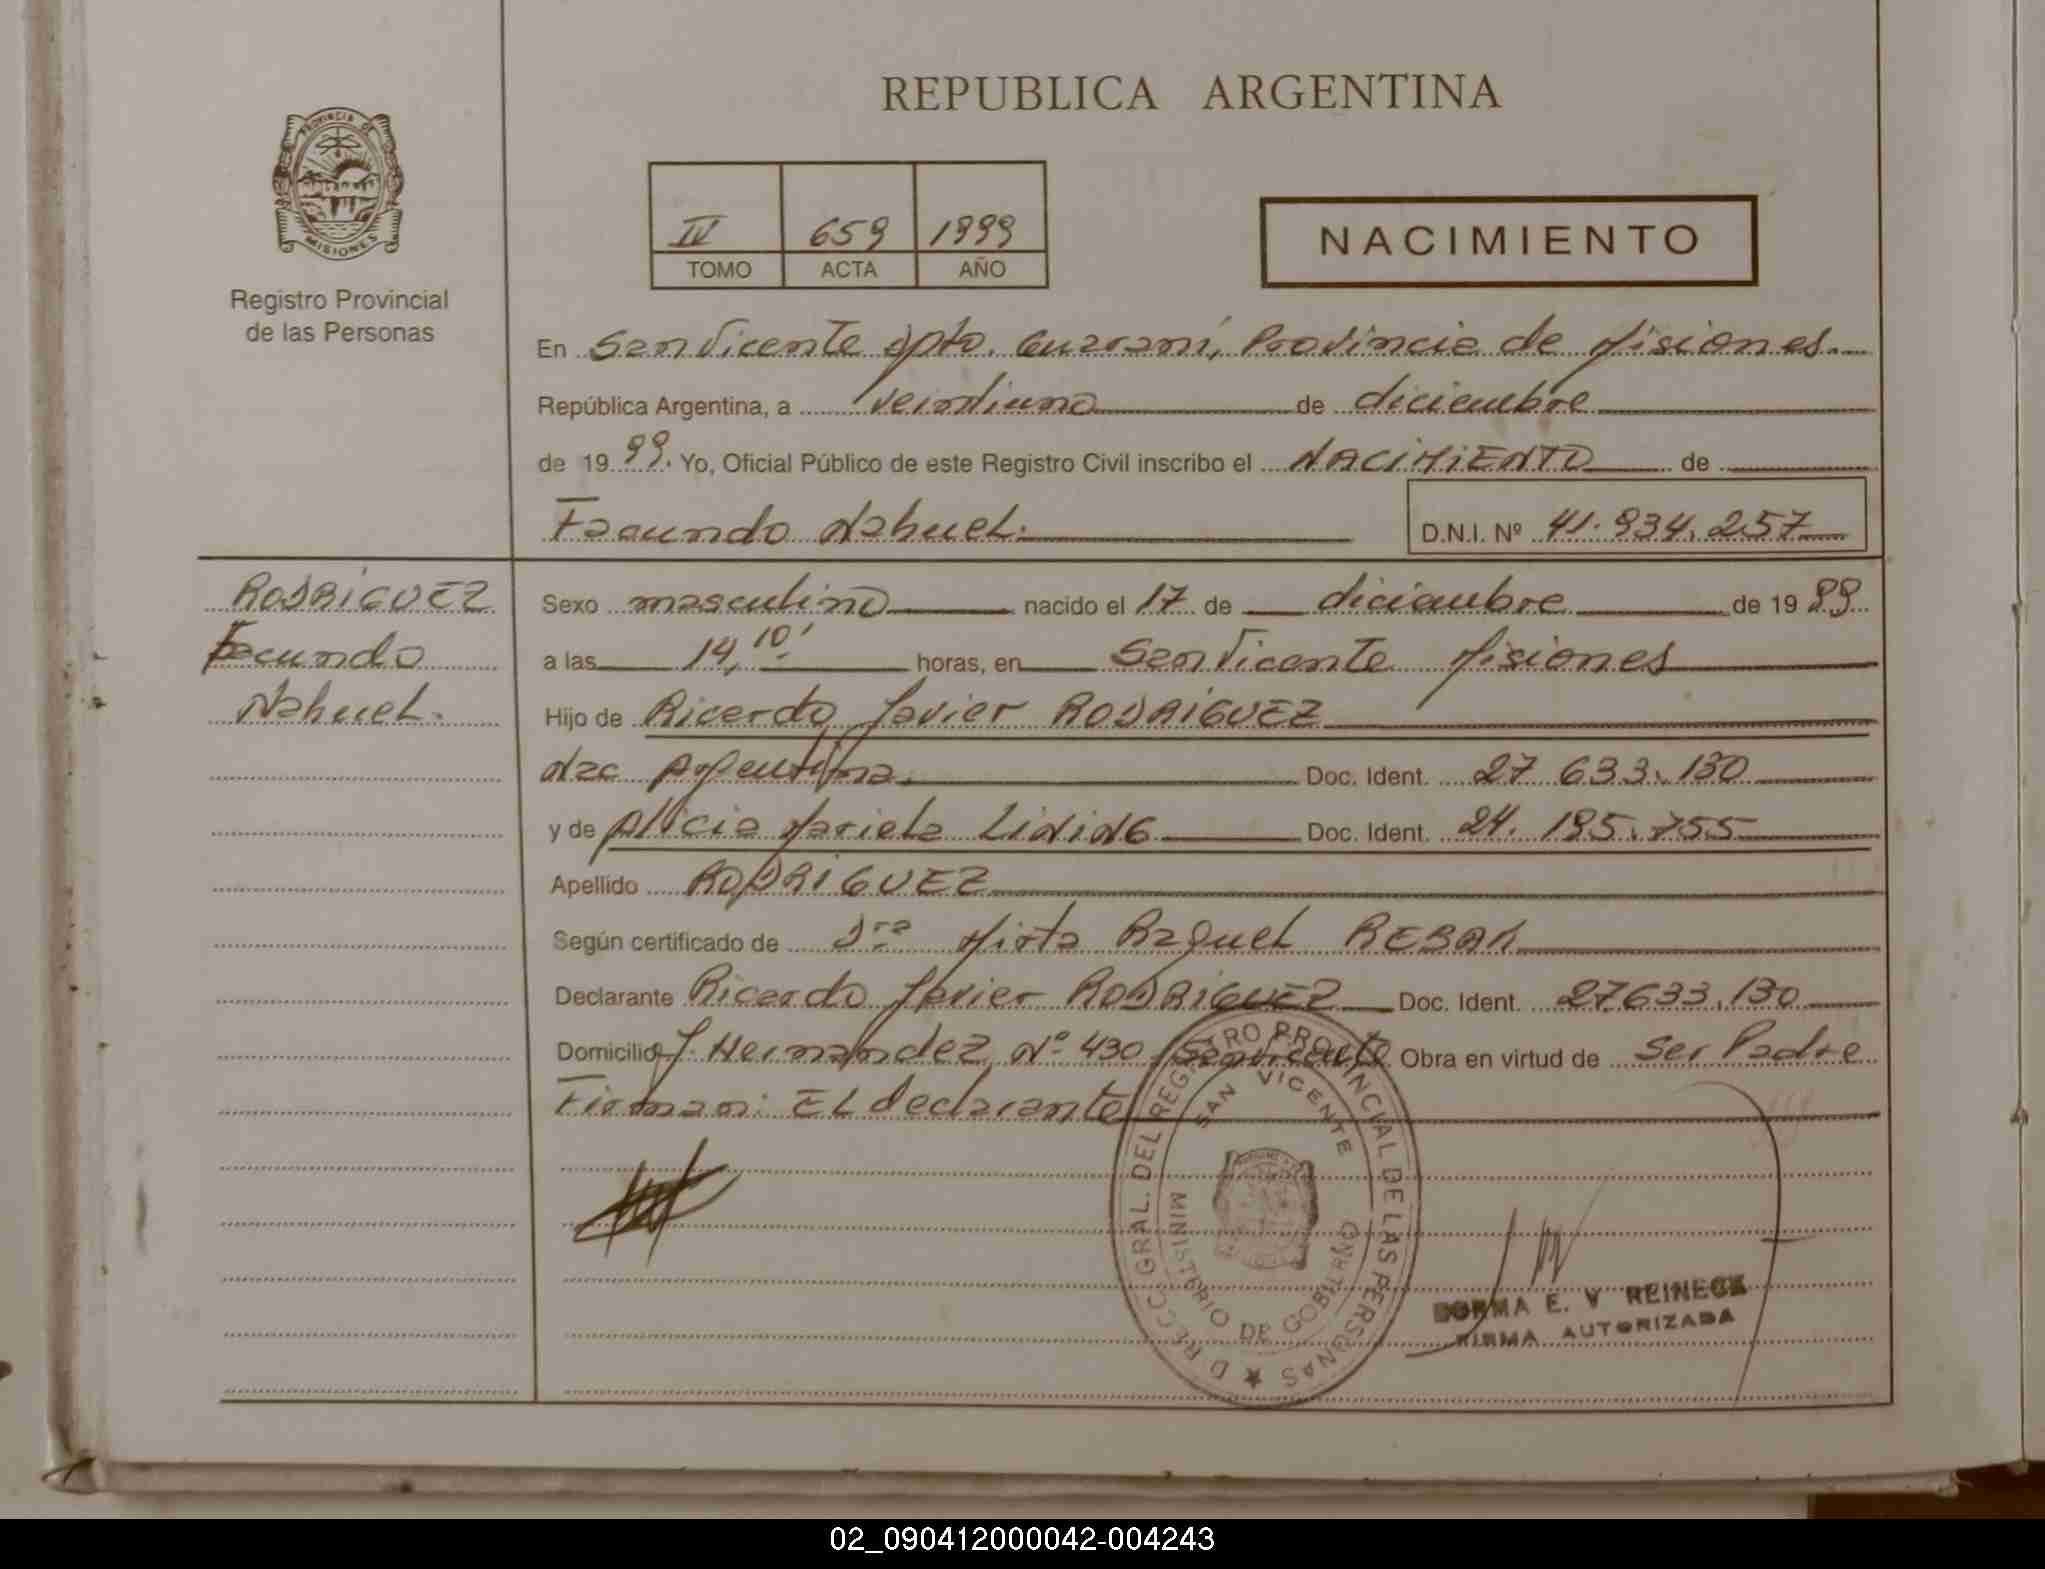 REPUBLICA ARGENTINA
PROVINCIA DE
MISIONES
Registro Provincial
de las Personas
IV 659 1999
TOMO ACTA AÑO
NACIMIENTO
En San Vicente dpto. Guaraní, Provincia de Misiones.
República Argentina, a veintiuno de diciembre
de 1999. Yo, Oficial Público de este Registro Civil inscribo el NACIMIENTO de
Facundo Nahuel. D.N.I. Nº 41.934.257
RODRIGUEZ
Facundo
Nahuel.
Sexo masculino nacido el 17 de diciembre de 1999
a las 14,10' horas, en San Vicente Misiones
Hijo de Ricardo Javier RODRIGUEZ
Nac Argentina. Doc. Ident. 27 633.130
y de Alicia Mariela LINING Doc. Ident. 24.195.755
Apellido RODRIGUEZ
Según certificado de Dra Mirta Raquel
Declarante Ricardo Javier RODRIGUEZ Doc. Ident. 27.633.130
Domicilio J. Hernandez Nº 430 San Vicente Obra en virtud de Ser Padre
Firman: El declarante
GRAL. DEL REGISTRO PROVINCIAL DE LAS PERSONAS
SAN VICENTE
MINISTERIO DE GOBIERNO
E. V REINECK
FIRMA AUTORIZADA
02_090412000042-004243